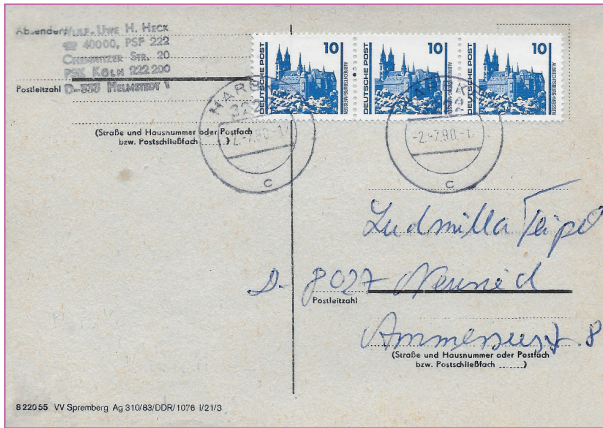 Absender: Wulf-Uwe H. Heck
☎ 40000, PSF 222
Chemnitzer Str. 20
PSK Köln 222 200
Postleitzahl D-333 Helmstedt 1
(Straße und Hausnummer oder Postfach
bzw. Postschließfach ......)
10 10 10
DEUTSCHE POST DEUTSCHE POST DEUTSCHE POST
-2.-7.90.-1
c c
Ludmilla Teipel
D- 8027 Neuried
Postleitzahl
8
(Straße und Hausnummer oder Postfach
bzw. Postschließfach ......)
8 220 55 VV Spremberg Ag 310/83/DDR/1076 I/21/3